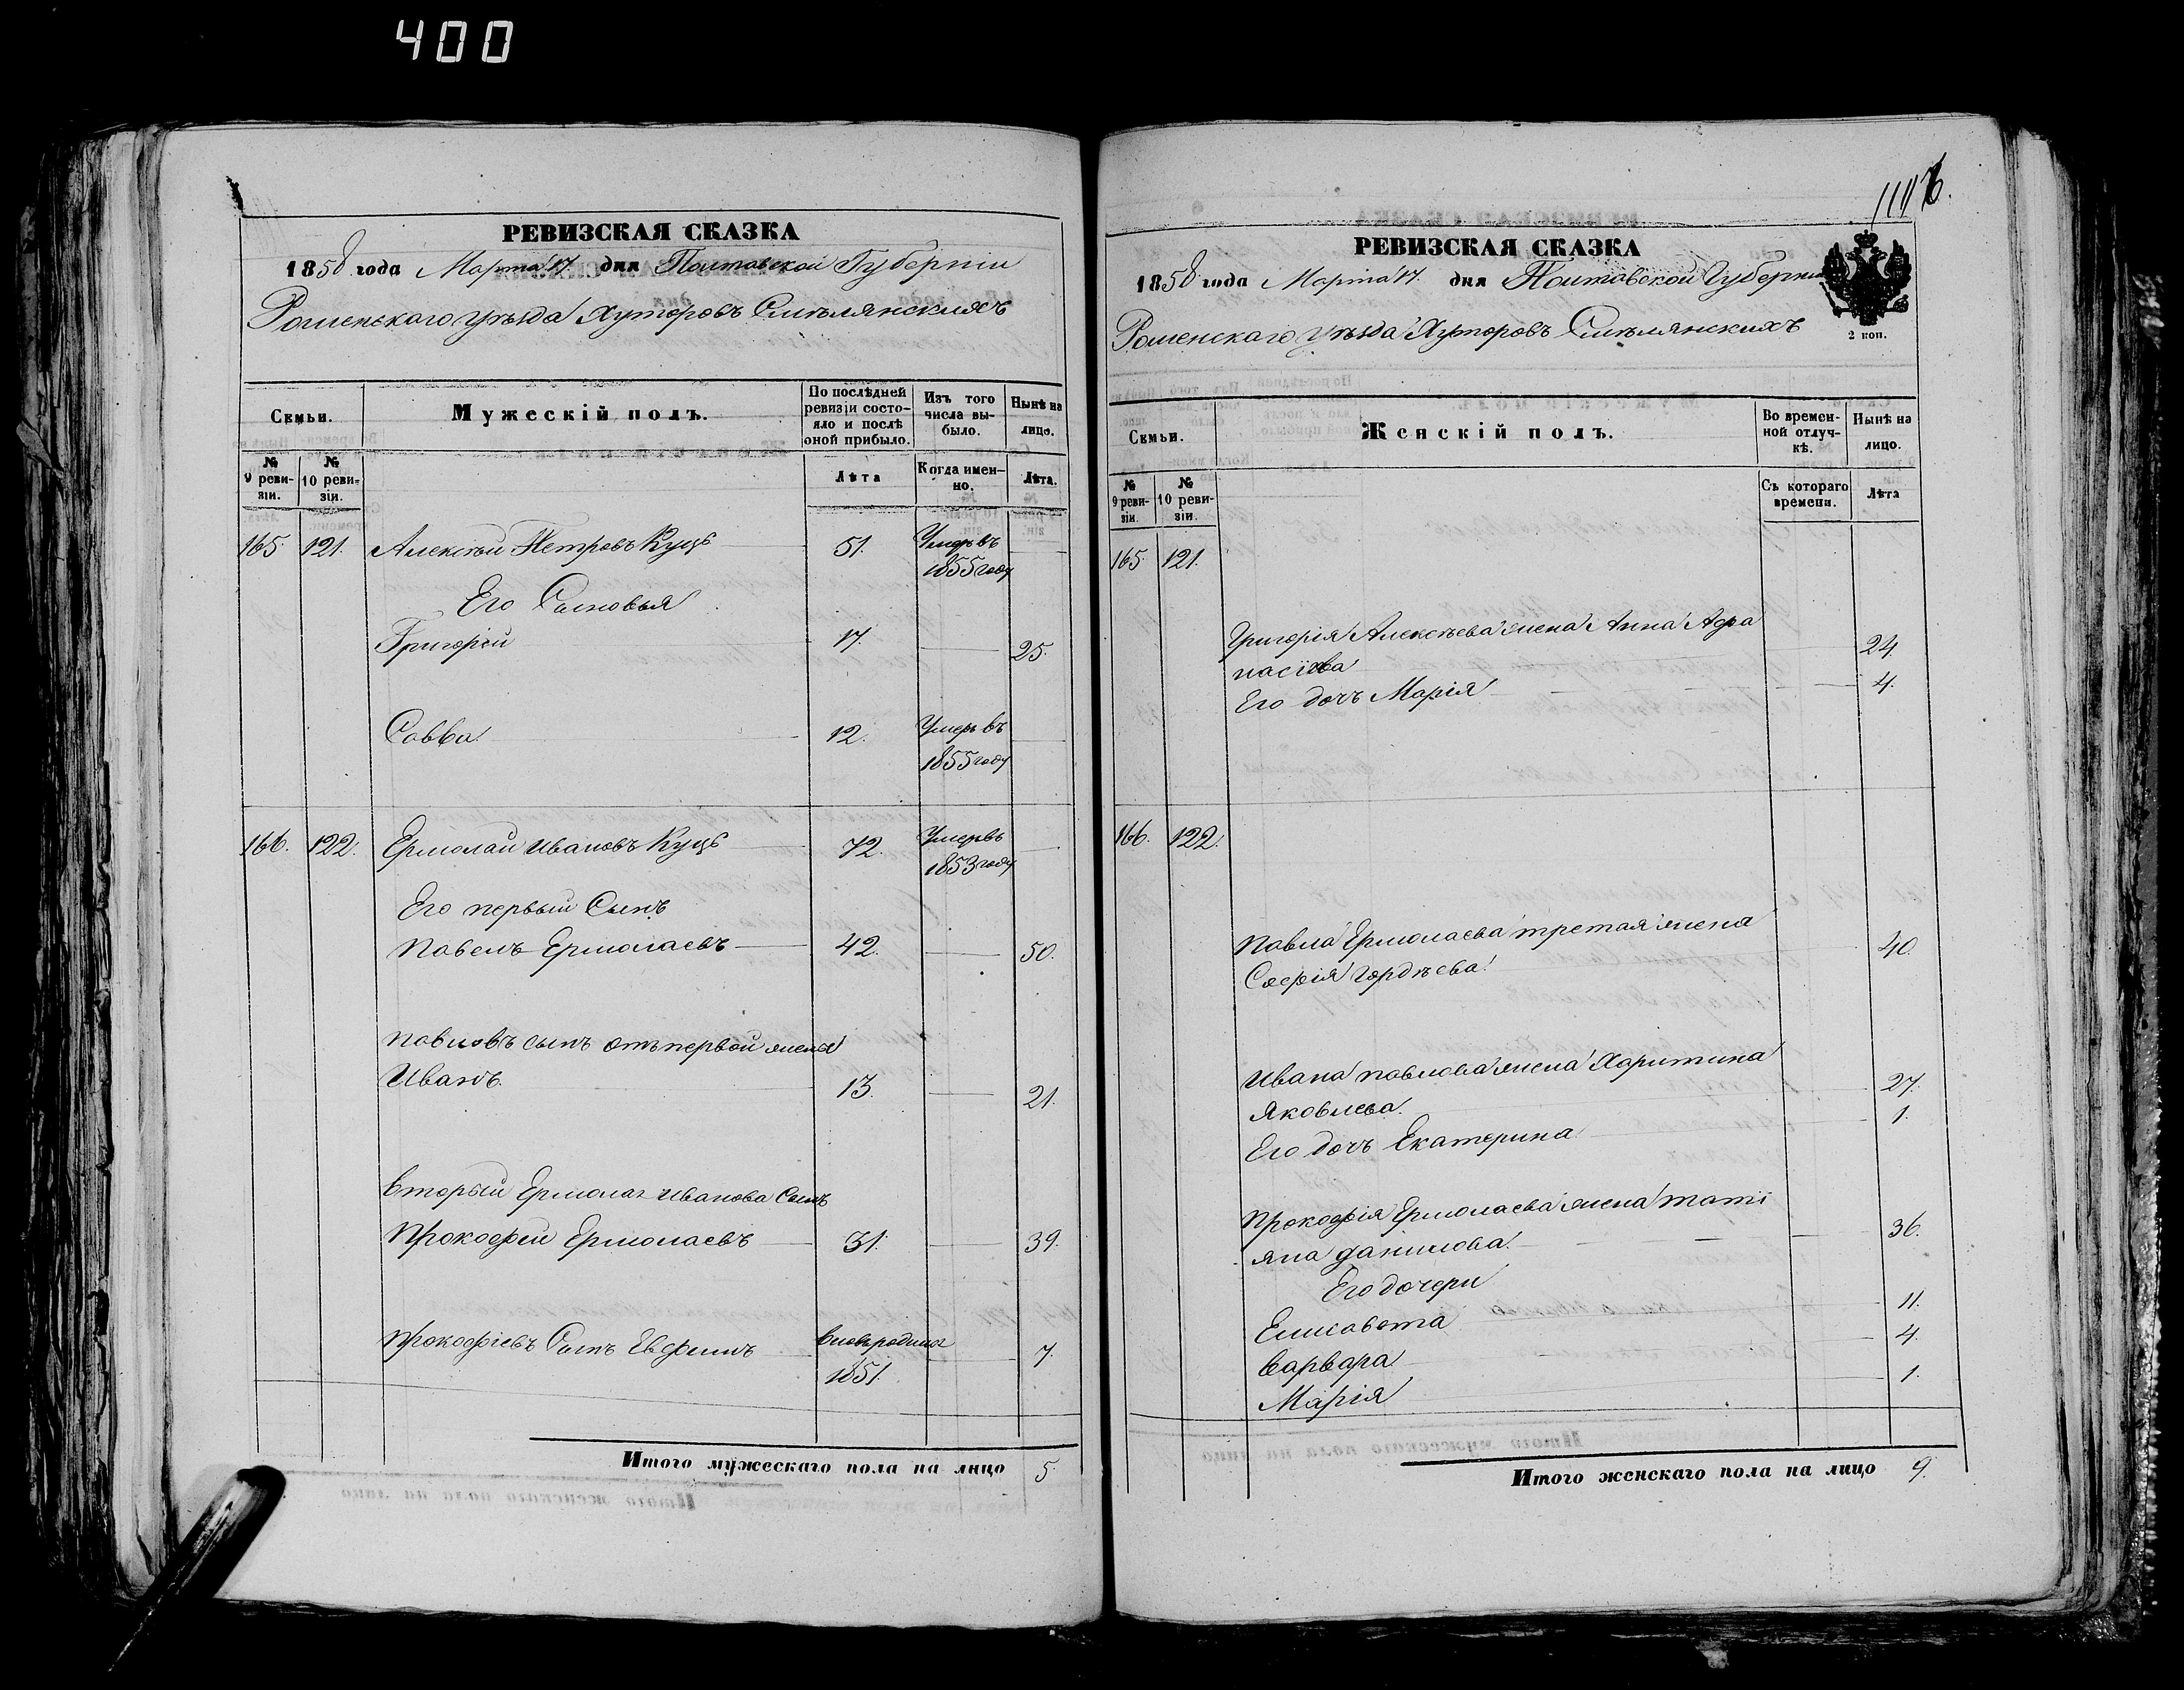 400
РЕВИЗСКАЯ СКАЗКА
1858 года Марта 17 дня Полтавской Губерніи
Роменьского уѣзда Хуторовъ Смѣлянскихъ
Семьи.
Мужескій полъ.
По послѣдней ревизіи состояло и послѣ оной прибыло.
Изъ того числа выбыло.
Нынѣ на лицо.
№ 9 ревизіи.
№ 10 ревизіи.
Лѣта
Когда именно.
Лѣта.
165. 121. Алексѣй Петровъ Куцъ 51. Умеръ въ 1855 году
Его Сыновья
Григорій 17. 25.
Савва 12. Умеръ въ 1855 году
166. 122. Ермолай Ивановъ Куцъ 72. Умеръ въ 1853 году
Его первый Сынъ
Павелъ Ермолаевъ 42. 50.
Павловъ сынъ отъ первой жены
Иванъ 13. 21.
Вторый Ермолая Иванова Сынъ
Прокофей Ермолаевъ 31. 39.
Прокофіевъ Сынъ Евфимъ
вновь родился 1851. 7.
Итого мужескаго пола на лицо 5.
РЕВИЗСКАЯ СКАЗКА
1858 года Марта 17. дня Полтавской Губерніи
Роменского уѣзда Хуторовъ Смѣлянскихъ
2 коп.
Семьи.
Женскій полъ.
Во временной отлучкѣ.
Нынѣ на лицо.
№ 9 ревизіи
№ 10 ревизіи.
Съ котораго времени.
Лѣта
165. 121.
Григорія Алексѣева жена Анна Афа
насіева 24.
Его дочь Марія 4.
166. 122.
Павла Ермолаева третая жена
Софія Гордѣева 40.
Ивана Павлова жена Харитина
Яковлева 27.
Его дочъ Екатерина 1.
Прокофія Ермолаева жена Тати
яна Данилова 36.
Его дочери
Елисавета 11.
Варвара 4.
Марія 1.
Итого женскаго пола на лицо 9.